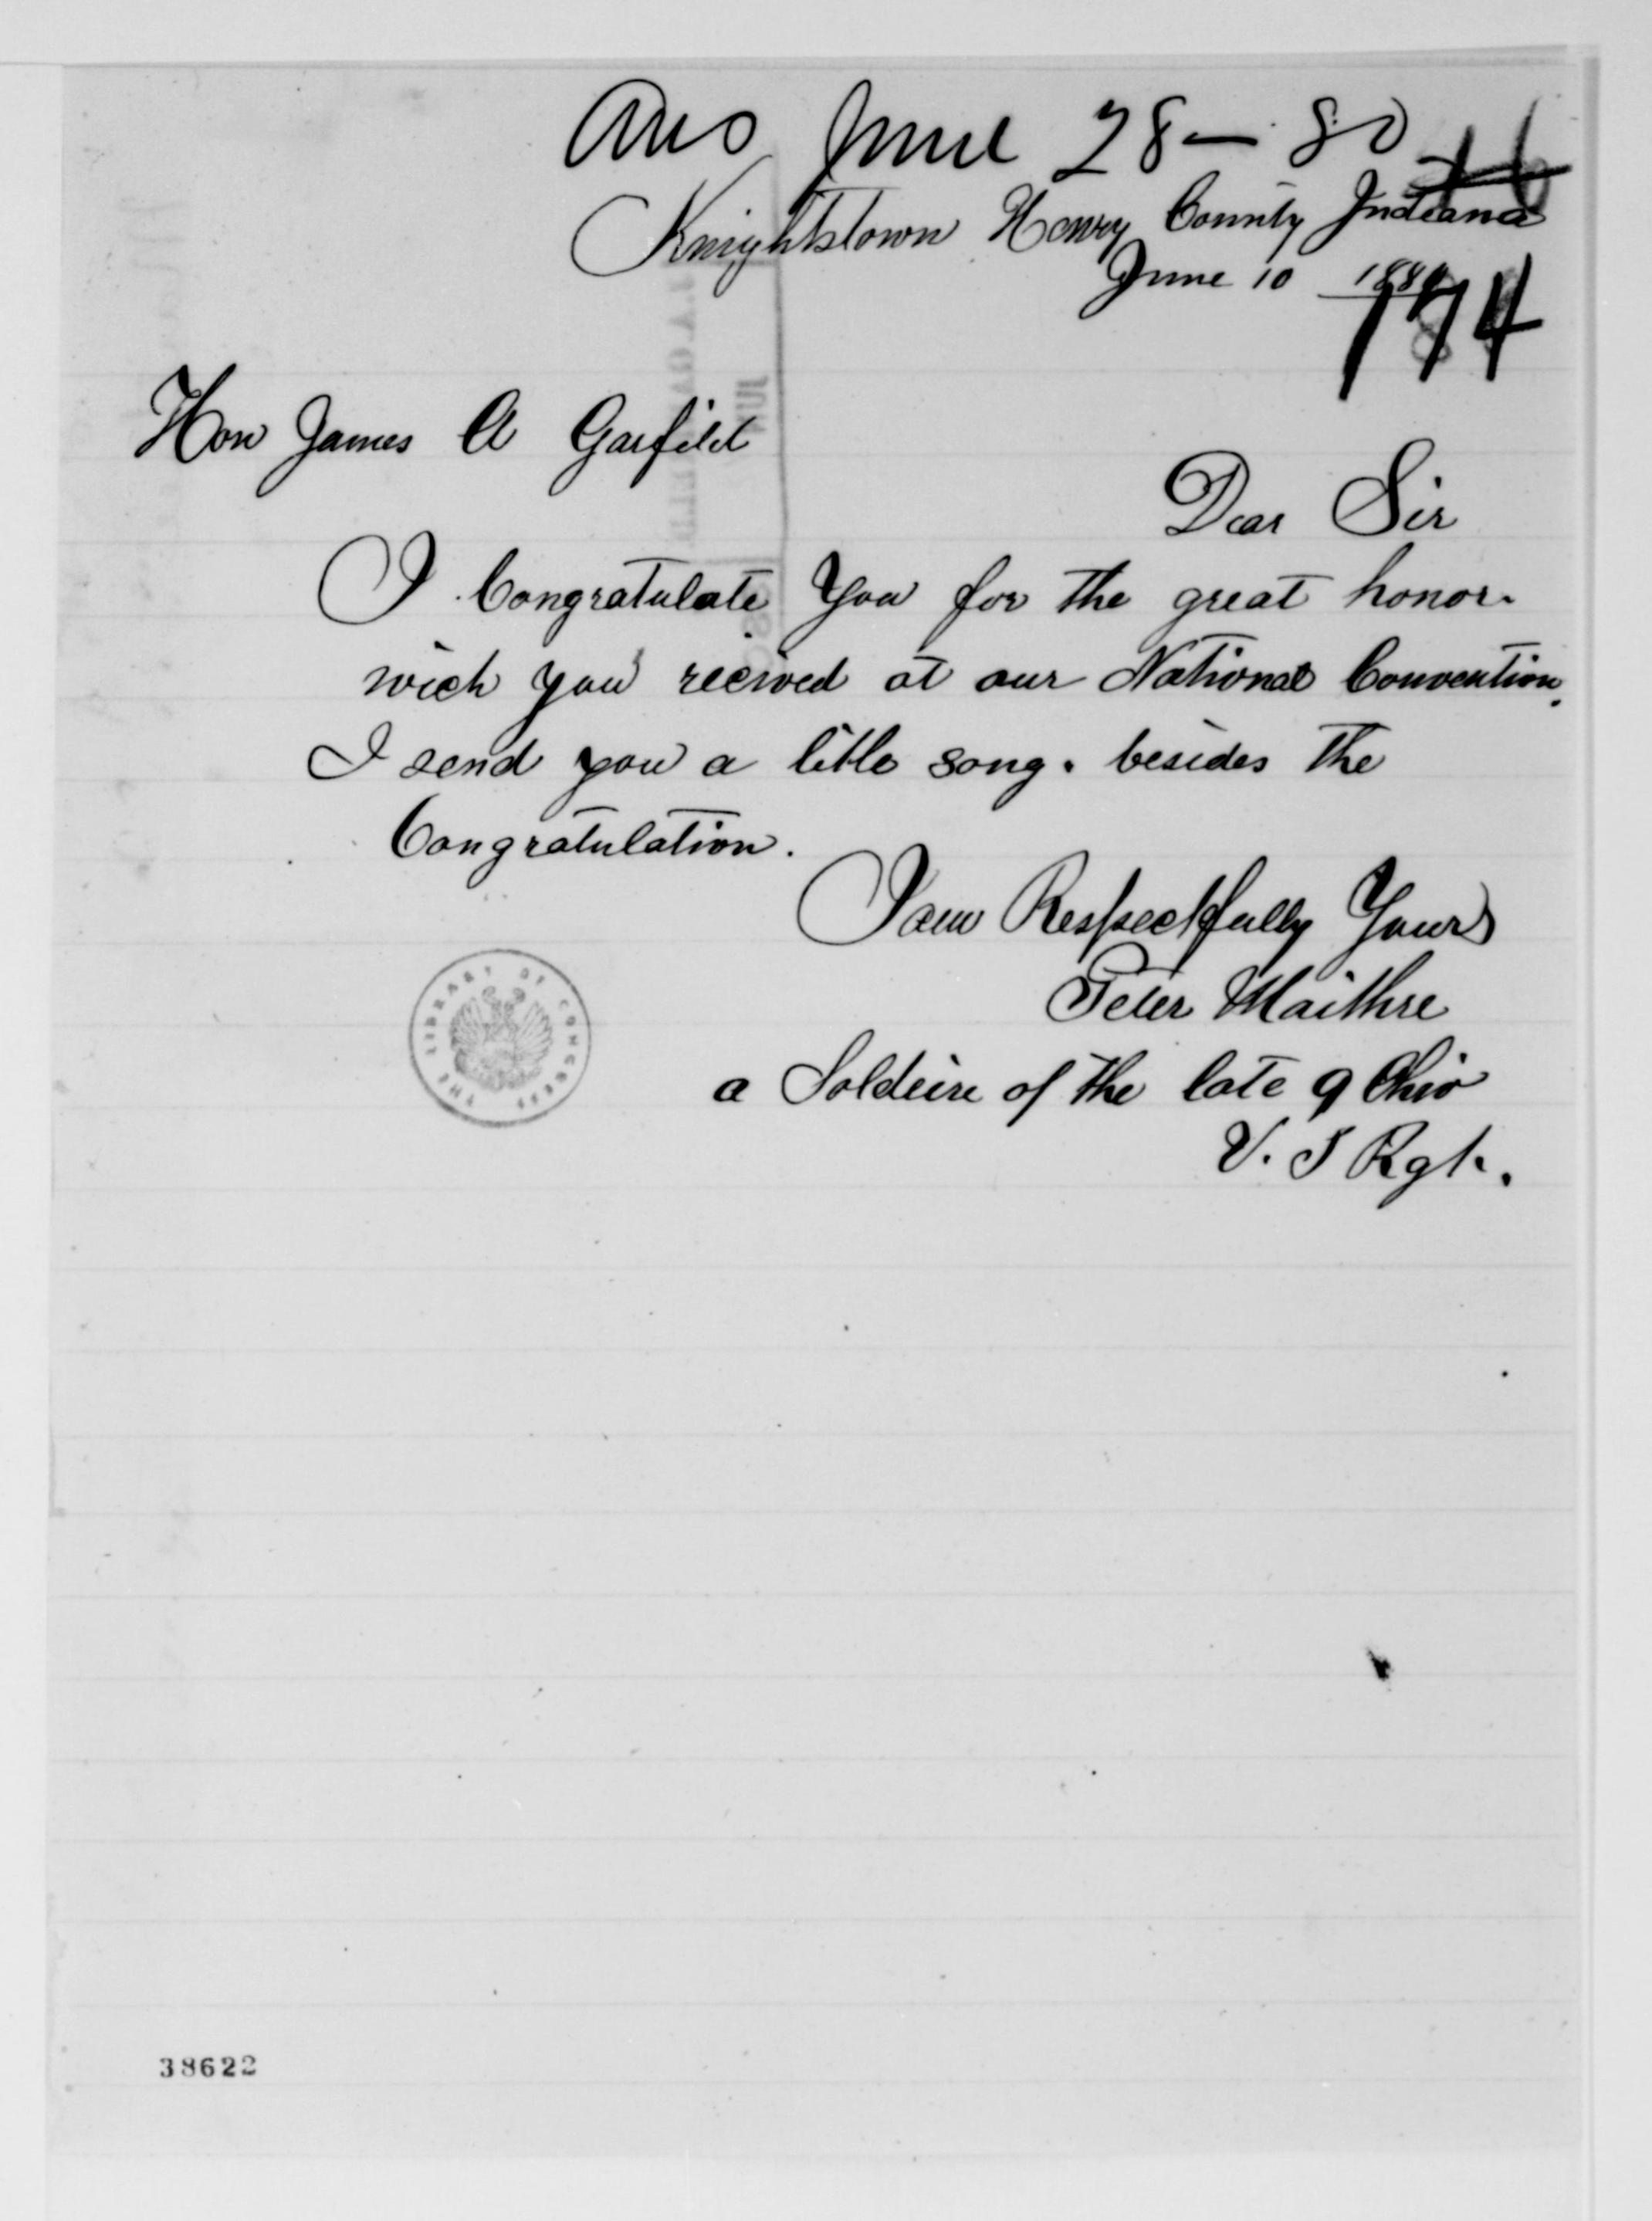 Ans June 28 — 80
Knightstown Henry County Indiana
June 10 1880
174
Hon James A Garfild
Dear Sir
I Congratulate You for the great honor.
wich you recived at our National Convention.
I send you a little song. besides the
Congratulation.
I am Respectfully Yours
Peter Maithre
a Soldeire of the late 9 Ohio
V. I Rgt.
THE LIBRARY OF CONGRESS
38622